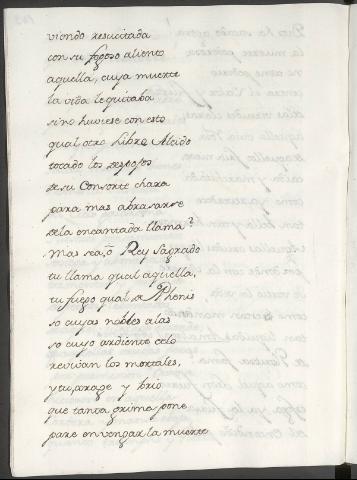 viendo resucitada
con su fogoso aliento
aquella, cuya muerte
la vida le quitaba
sino huviese con esto
qual otro Alcido
tocado los despojos
de su Consorte chara
para mas abrasarse
de la encantada llama?
mas sea, ô Rey Sagrado
tu llama qual aquella,
tu fuego qual de Phenis
so cuyas nobles alas
so cuyo ardiente celo
revivan los mortales,
y tu, y brio
que tanta grima pone
pare en vengar la muerte